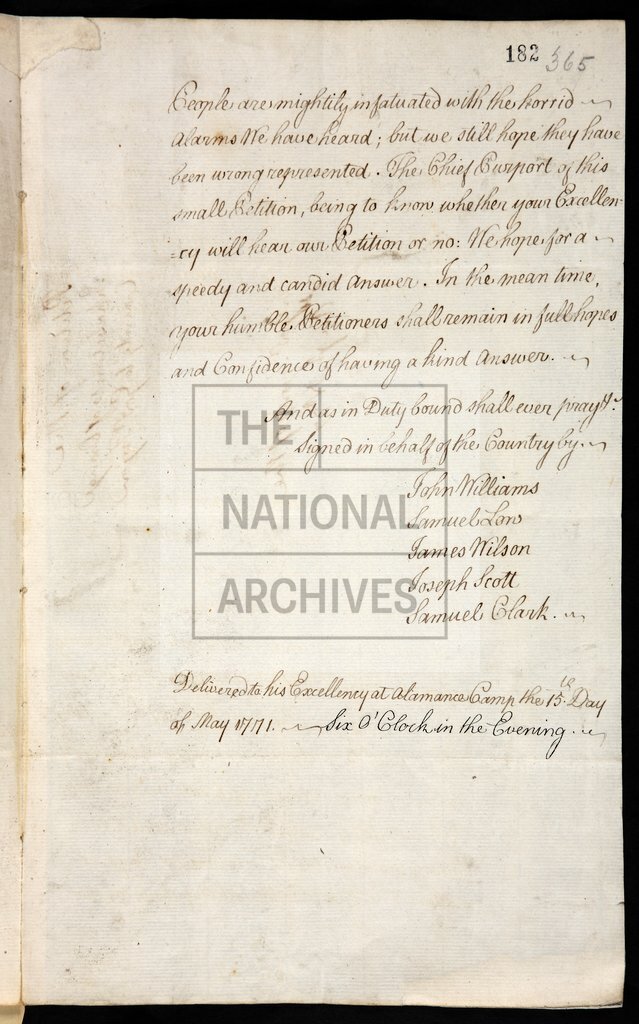 182 365
People are mightily infatuated with the horrid
Alarms We have heard; but we still hope they have
been wrong represented. The Chief Purport of this
small Petition, being to know whether your Excellen-
=cy will hear our Petition or no: We hope for a
speedy and candid Answer. In the mean time,
your humble Petitioners shall remain in full hopes
and Confidence of having a kind Answer.
And as in Duty bound shall ever pray &c.
Signed in behalf of the Country by.
John Williams
Samuel Low
James Wilson
Joseph Scott
Samuel Clark.
Delivered to his Excellency at Alamance Camp the 15th Day
of May 1771. Six O'Clock in the Evening.
THE
NATIONAL
ARCHIVES